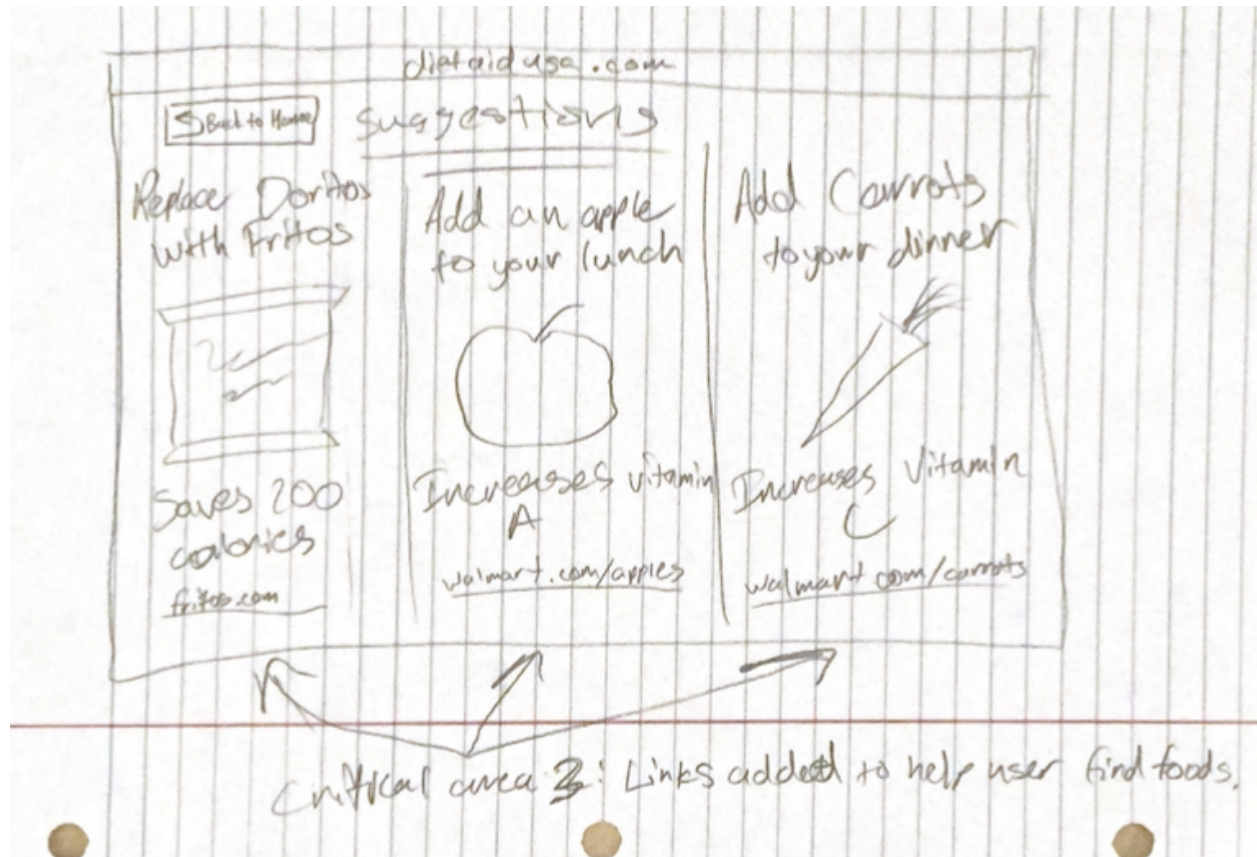 dietaidusa.com
Back to Home
Suggestions
Replace Doritos
with Fritos
Saves 200
calories
fritos.com
Add an apple
to your lunch
Increases vitamin
A
walmart.com/apples
Add Carrots
to your dinner
Increases Vitamin
C
walmart.com/carrots
Critical area 3: Links added to help user find foods.